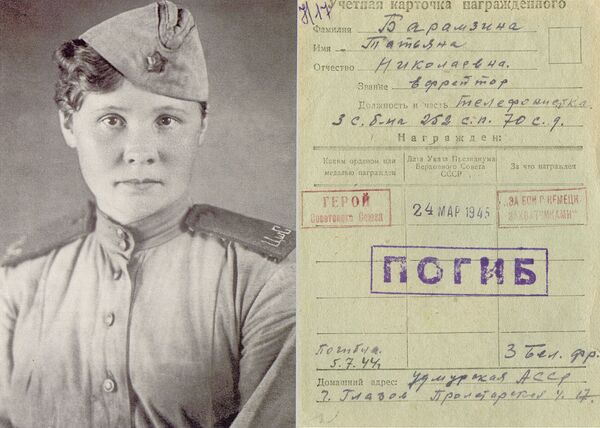 Учетная карточка награжденного
Фамилия Барамзина
Имя Татьяна
Отчество Николаевна.
Звание ефрейтор
Должность и часть телефонистка.
3 с.б-на 252 с.п. 70 с.д.
Награжден:
Каким орденом или медалью награжден
Дата Указа Президиума Верховного Совета СССР
За что награжден
ГЕРОЙ
Советского Союза
24 МАР 1945
ЗА БОИ С НЕМЕЦК.
ЗАХВАТЧИКАМИ
ПОГИБ
Погибла
5.7.44г.
3 Бел. фр.
Домашний адрес: Удмурская АССР
г. Глазов Пролетарская 17.